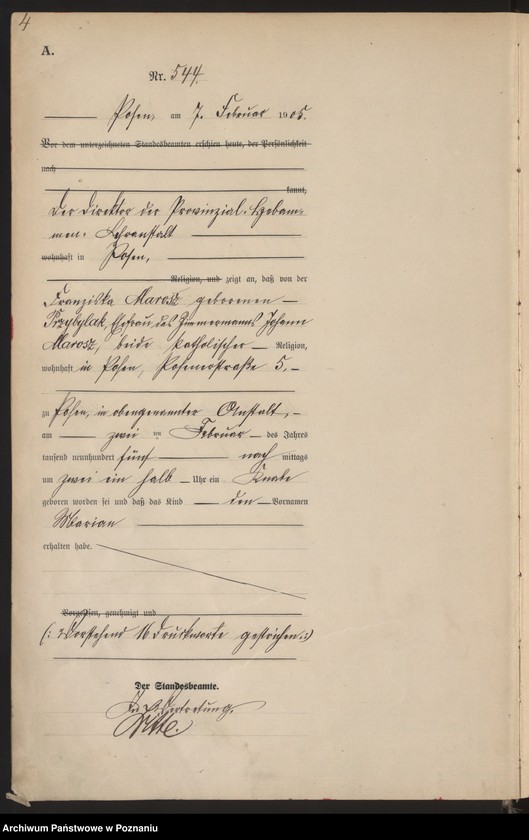 4
A.
Nr. 544.
Posen, am 7. Februar 1905.
Vor dem unterzeichneten Standesbeamten erschien heute, der Persönlichkeit
nach
kannt,
Der Direktor der Provinzial-Hebam-
men-Lehranstalt
wohnhaft in Posen,
Religion, und zeigt an, daß von der
Franziska Marosz geborenen
Przybylak, Ehefrau des Zimmermanns Johann
Marosz, beide katholischer Religion,
wohnhaft in Posen, Posenerstraße 5,
zu Posen, in obengenannter Anstalt,
am zwei ten Februar des Jahres
tausend neunhundert fünf nach mittags
um zwei ein halb Uhr ein Knabe
geboren worden sei und daß das Kind den Vornamen
Marian
erhalten habe.
Vorgelesen, genehmigt und
(: Vorstehend 16 Druckworte gestrichen. :)
Der Standesbeamte.
In Vertretung.
Archiwum Państwowe w Poznaniu